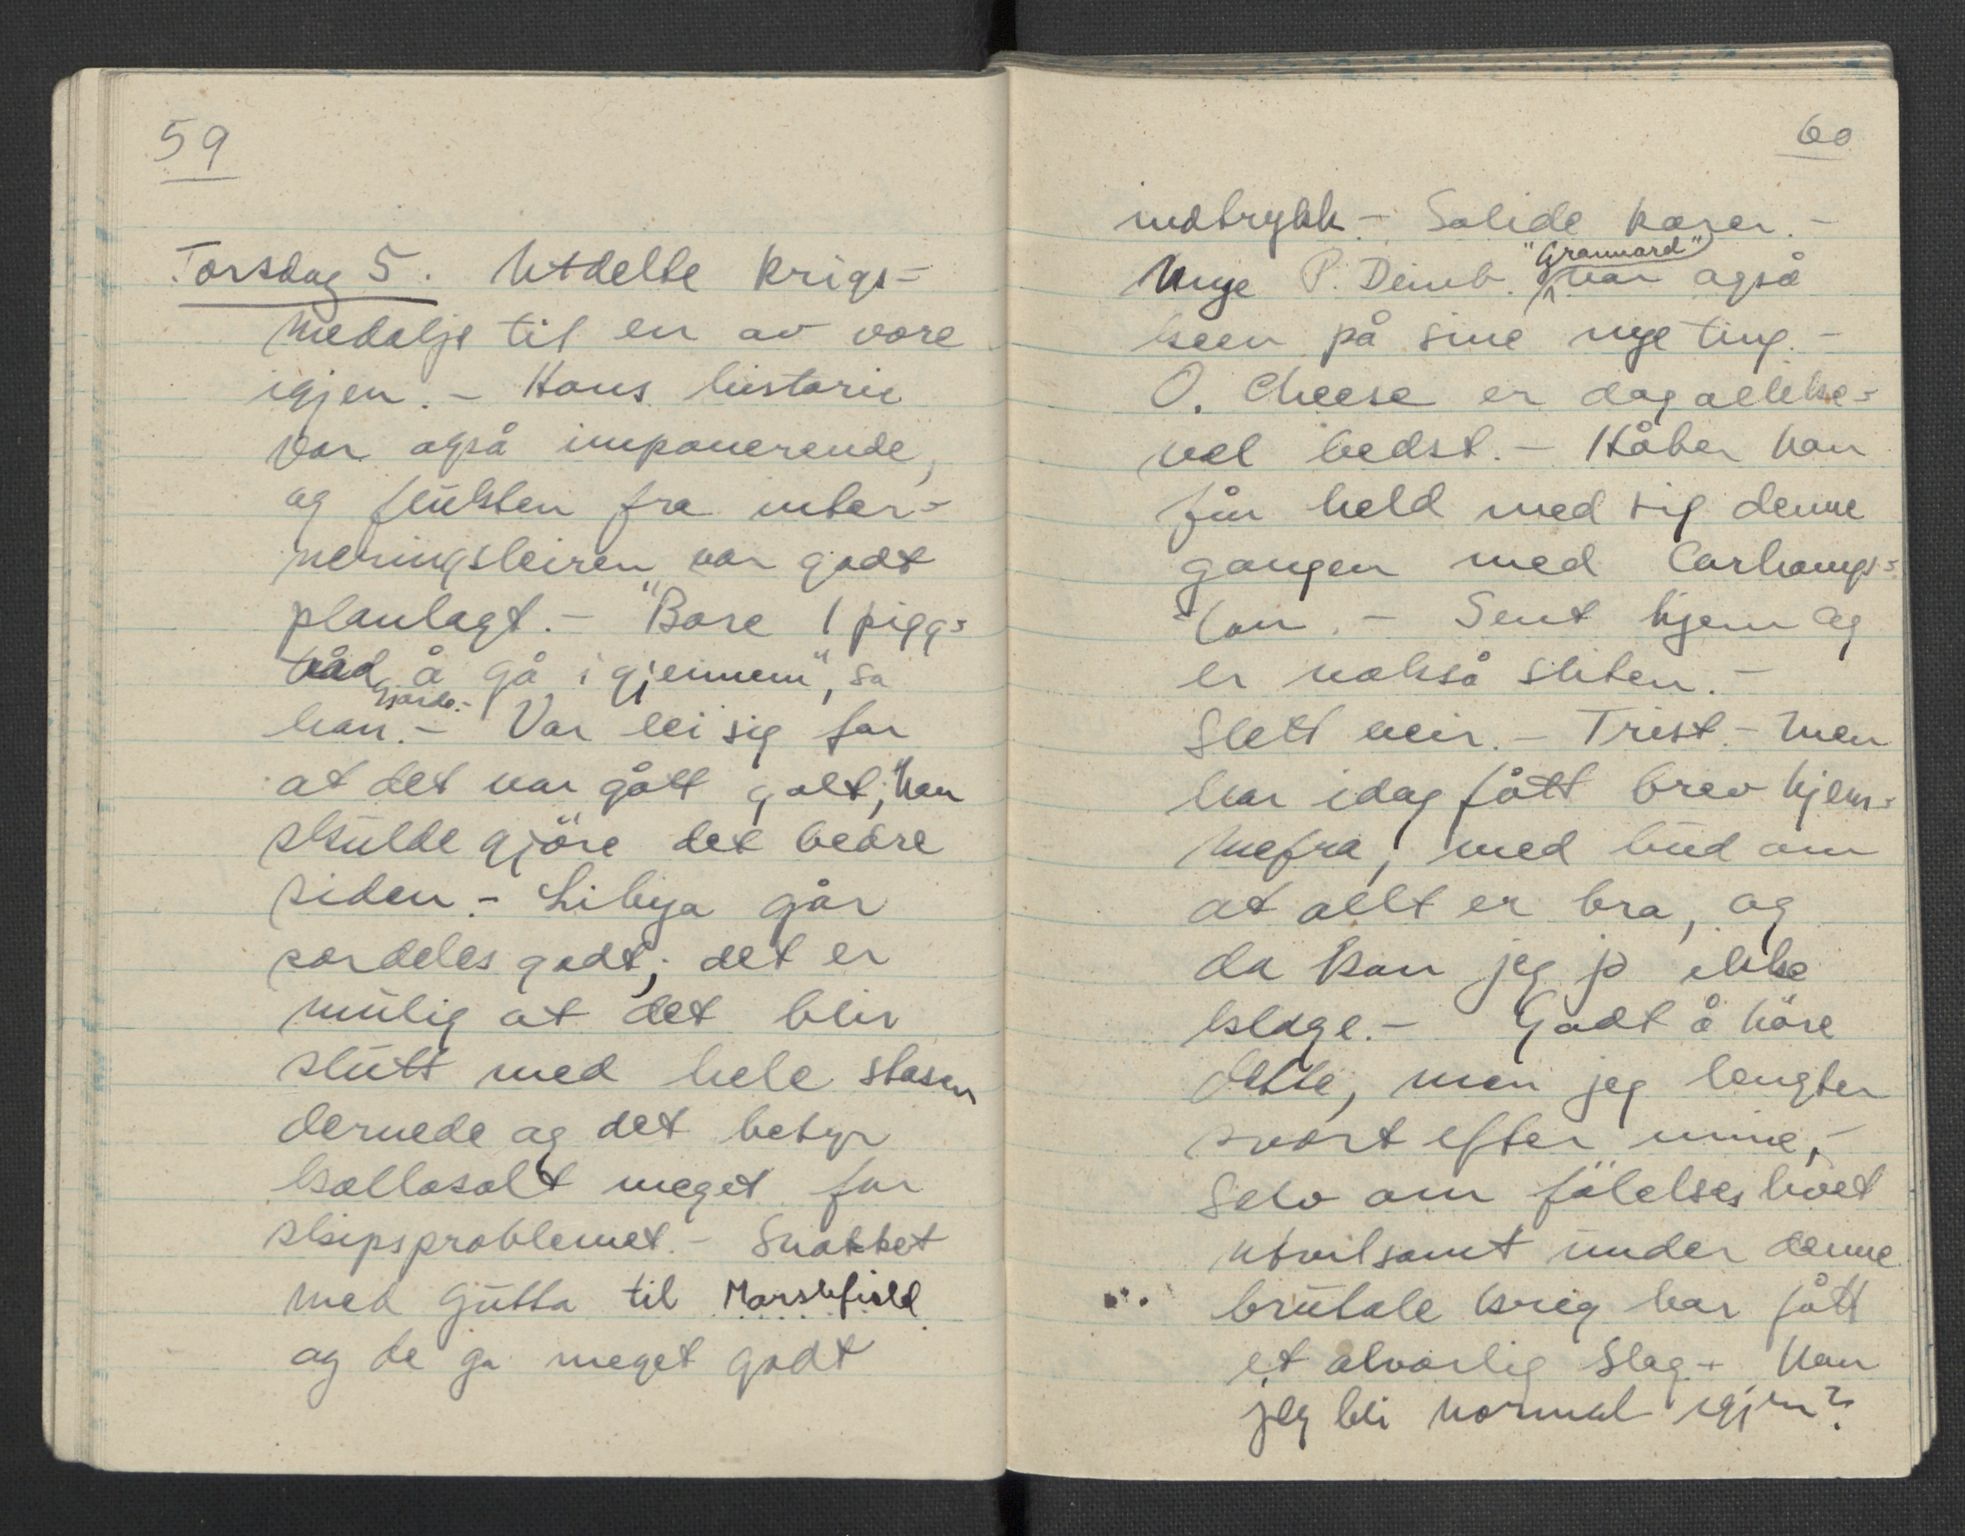 59
Torsdag 5. Utdelte krigs=
medalje til en av vore
igjen. – Hans historie
var også imponerende,
og flukten fra inter=
neringsleiren var godt
planlagt. – "Bare 1 pigg=
tråd å gå igjennem", sa
gjærde. –
han. – Var lei sig for
at det var gått galt, han
skulde gjöre det bedre
siden. – Libya går
særdeles godt; det er
mulig at det blir
slutt med hele stasen
dernede og det betyr
kollosalt meget for
skipsproblemet. – Snakket
med Gutta til Marshfield
og de ga meget godt
60
indtrykk. – Solide karer. –
"Grannard"
Unge P. Deinb. var også
keen på sine nye ting. –
O. Cheese er dog allike=
vel bedst. – Håber han
får held med sig denne
gangen med Carhamp=
ton. – Sent hjem og
er nokså sliten. –
Slett veir. – Trist. – Men
har idag fått brev hjem=
mefra, med bud om
at allt er bra, og
da kan jeg jo ikke
klage. – Godt å höre
dette, men jeg lengter
svært efter mine, –
Selv om fölelseslivet
utvilsomt under denne
brutale krig har fått
et alvorlig slag. – Kan
jeg bli normal igjen?